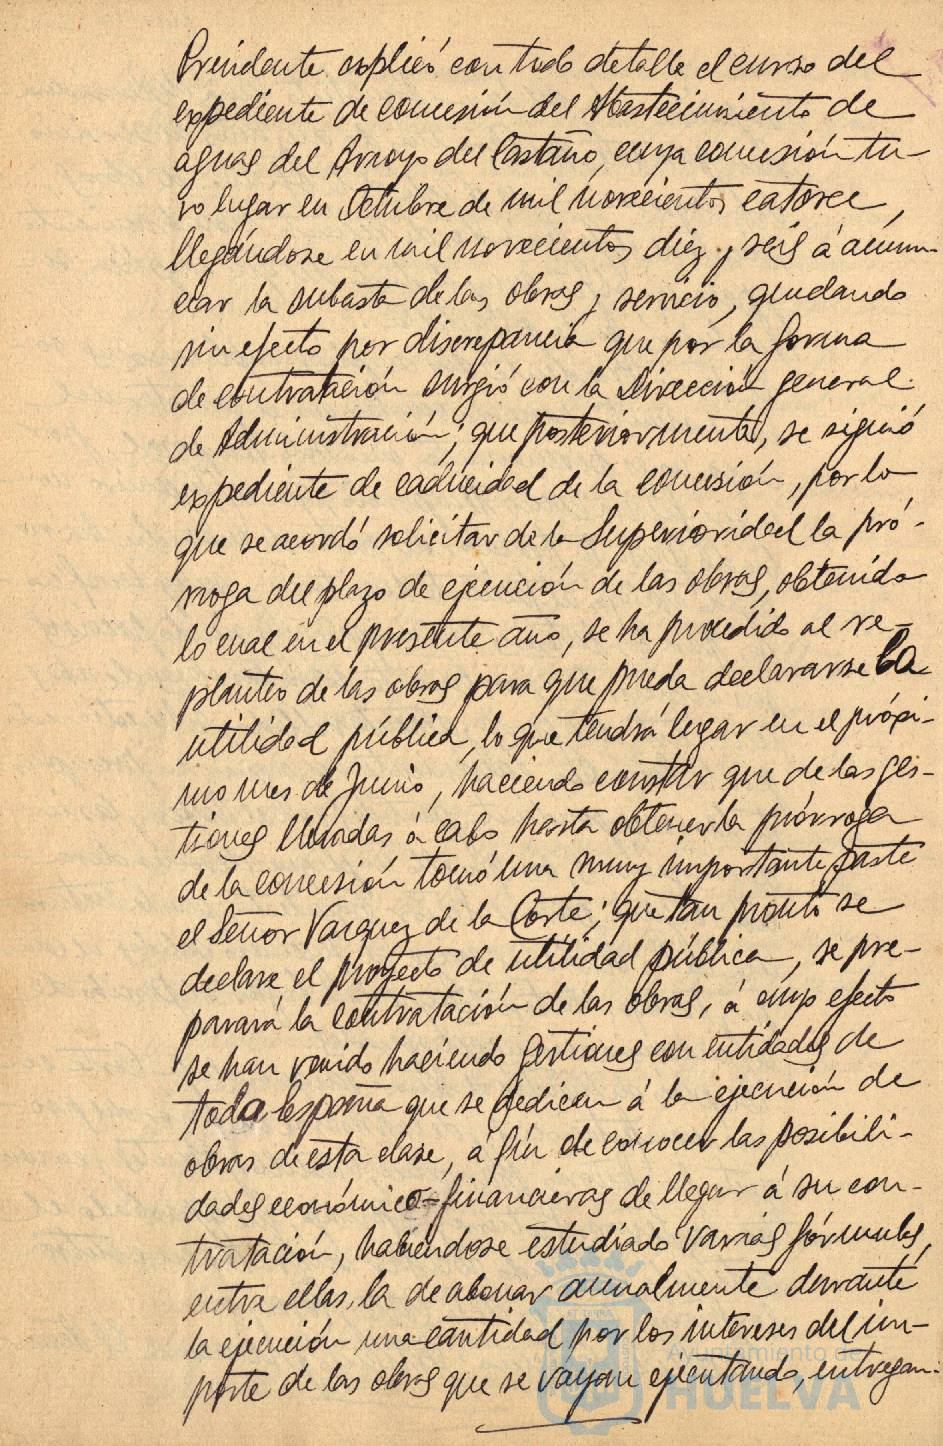 Presidente explicó con todo detalle el curso del
expediente de concesión del Abastecimiento de
aguas del Arroyo del Castaño, cuya concesión tu-
vo lugar en Octubre de mil novecientos catorce,
llegándose en mil novecientos diez y seis á anun-
ciar la subasta de las obras y servicio, quedando
sin efecto por discrepancia que por la forma
de contratación surgió con la Dirección general
de Administración; que posteriormente, se siguió
expediente de caducidad de la concesión, por lo
que se acordó solicitar de la Superioridad la pró-
rroga del plazo de ejecución de las obras, obtenido
lo cual en el presente año, se ha procedido al re-
planteo de las obras para que pueda declararse la
utilidad pública, lo que tendrá lugar en el próxi-
mo mes de Junio, haciendo constar que de las ges-
tiones llevadas á cabo hasta obtener la prórroga
de la concesión tomó una muy importante parte
el Señor Vazquez de la Corte; que tan pronto se
declare el proyecto de utilidad pública, se pre-
parará la contratación de las obras, á cuyo efecto
se han venido haciendo gestiones con entidades de
toda España que se dedican á la ejecución de
obras de esta clase, á fín de conocer las posibili-
dades económico-financieras de llegar á su con-
tratación, habiendose estudiado varias fórmulas,
entre ellas, la de abonar anualmente durante
la ejecución una cantidad por los intereses del im-
porte de las obras que se vayan ejecutando, entregan-
Ayuntamiento de
HUELVA